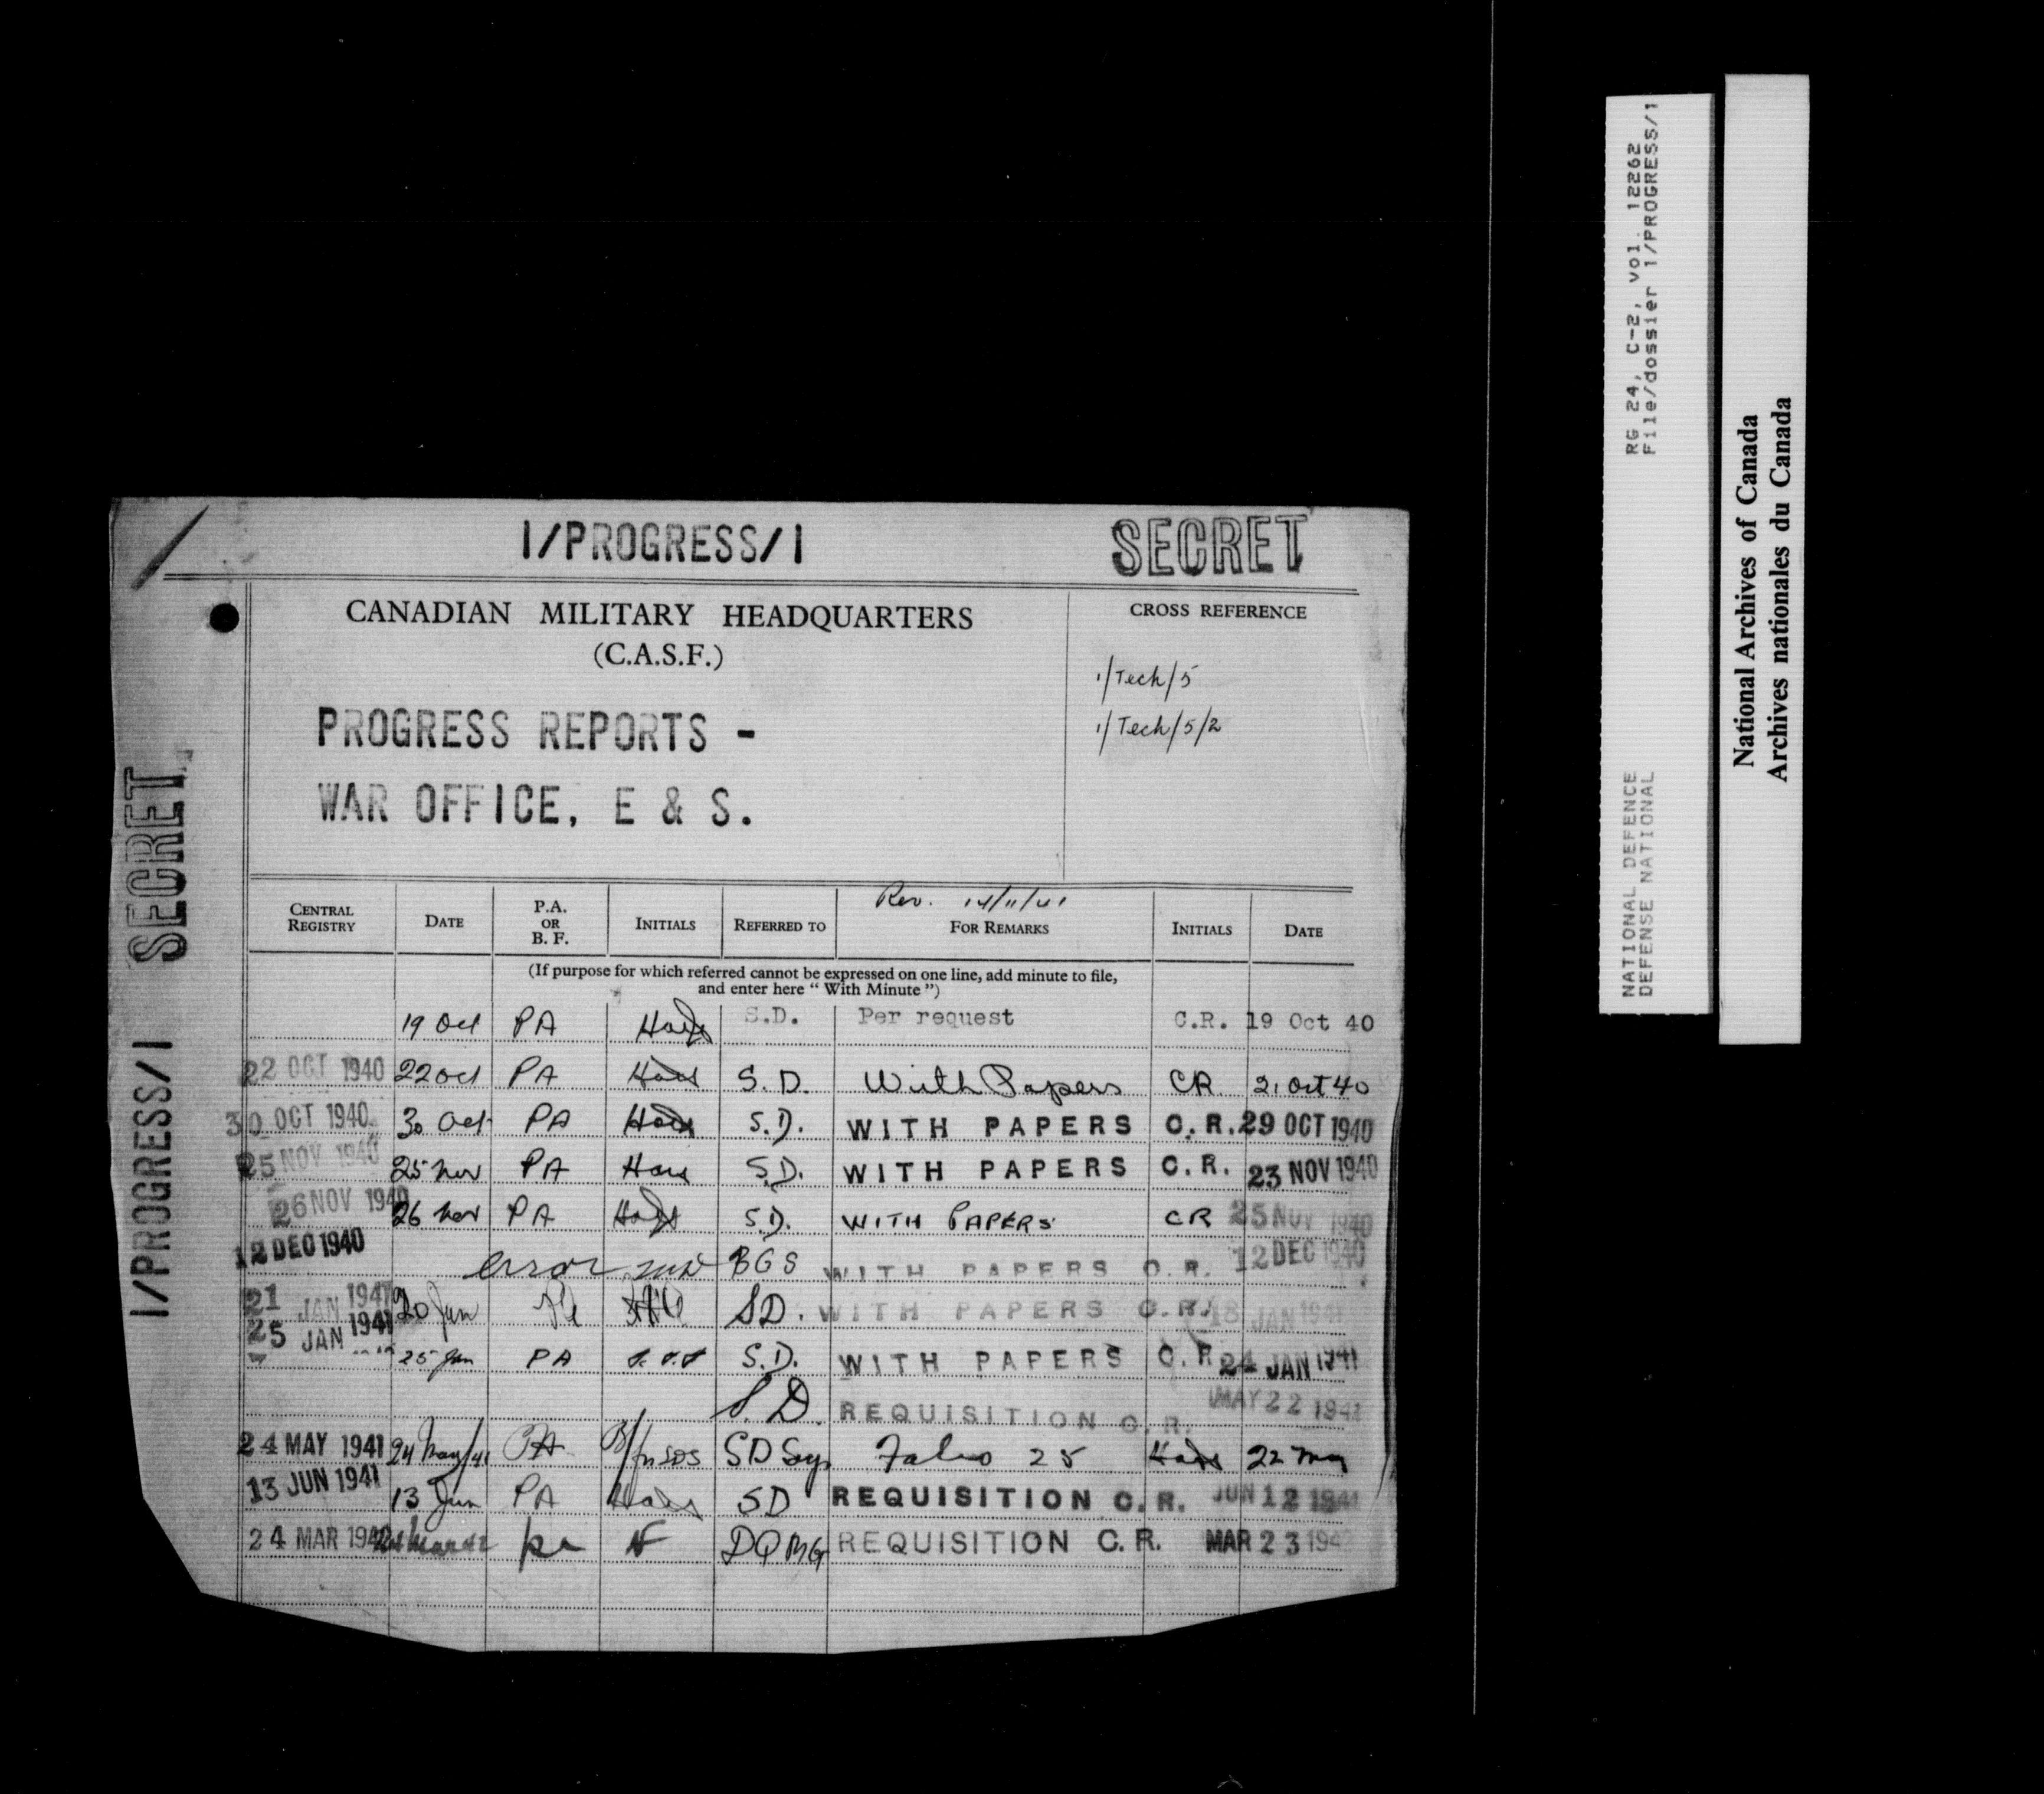 I/PROGRESS/I
SECRET
CANADIAN MILITARY HEADQUARTERS
(C.A.S.F.)
CROSS REFERENCE
1/Tech/5
1/Tech/5/2
PROGRESS REPORTS -
WAR OFFICE, E & S.
Rev. 14/11/41
CENTRAL REGISTRY DATE P.A. OR B. F. INITIALS REFERRED TO FOR REMARKS INITIALS DATE
(If purpose for which referred cannot be expressed on one line, add minute to file,
and enter here " With Minute ")
19 Oct PA S.D. Per request C.R. 19 Oct 40
22 OCT 1940 22 Oct PA S.D. With Papers CR 21 Oct 40
30 OCT 1940 30 Oct PA S.D. WITH PAPERS C.R. 29 OCT 1940
25 NOV 1940 25 Nov PA S.D. WITH PAPERS C.R. 23 NOV 1940
26 NOV 1940 26 Nov PA S.D. WITH PAPERS CR 25 NOV 1940
12 DEC 1940 error BGS WITH PAPERS C.R. 12 DEC 1940
21 JAN 1941 20 Jan SD. WITH PAPERS C.R. 18 JAN 1941
25 JAN 1941 25 Jan PA S.D. WITH PAPERS C.R. 24 JAN 1941
S.D. REQUISITION C.R. MAY 22 1941
24 MAY 1941 24 May/41 PA SD Folio 25 22 May
13 JUN 1941 13 Jun PA SD REQUISITION C.R. JUN 12 1941
24 MAR 1942 pa DQMG REQUISITION C.R. MAR 23 194
I/PROGRESS/I SECRET
NATIONAL DEFENCE RG 24, C-2, vol. 12262
DEFENSE NATIONAL File/dossier 1/PROGRESS/1
National Archives of Canada
Archives nationales du Canada